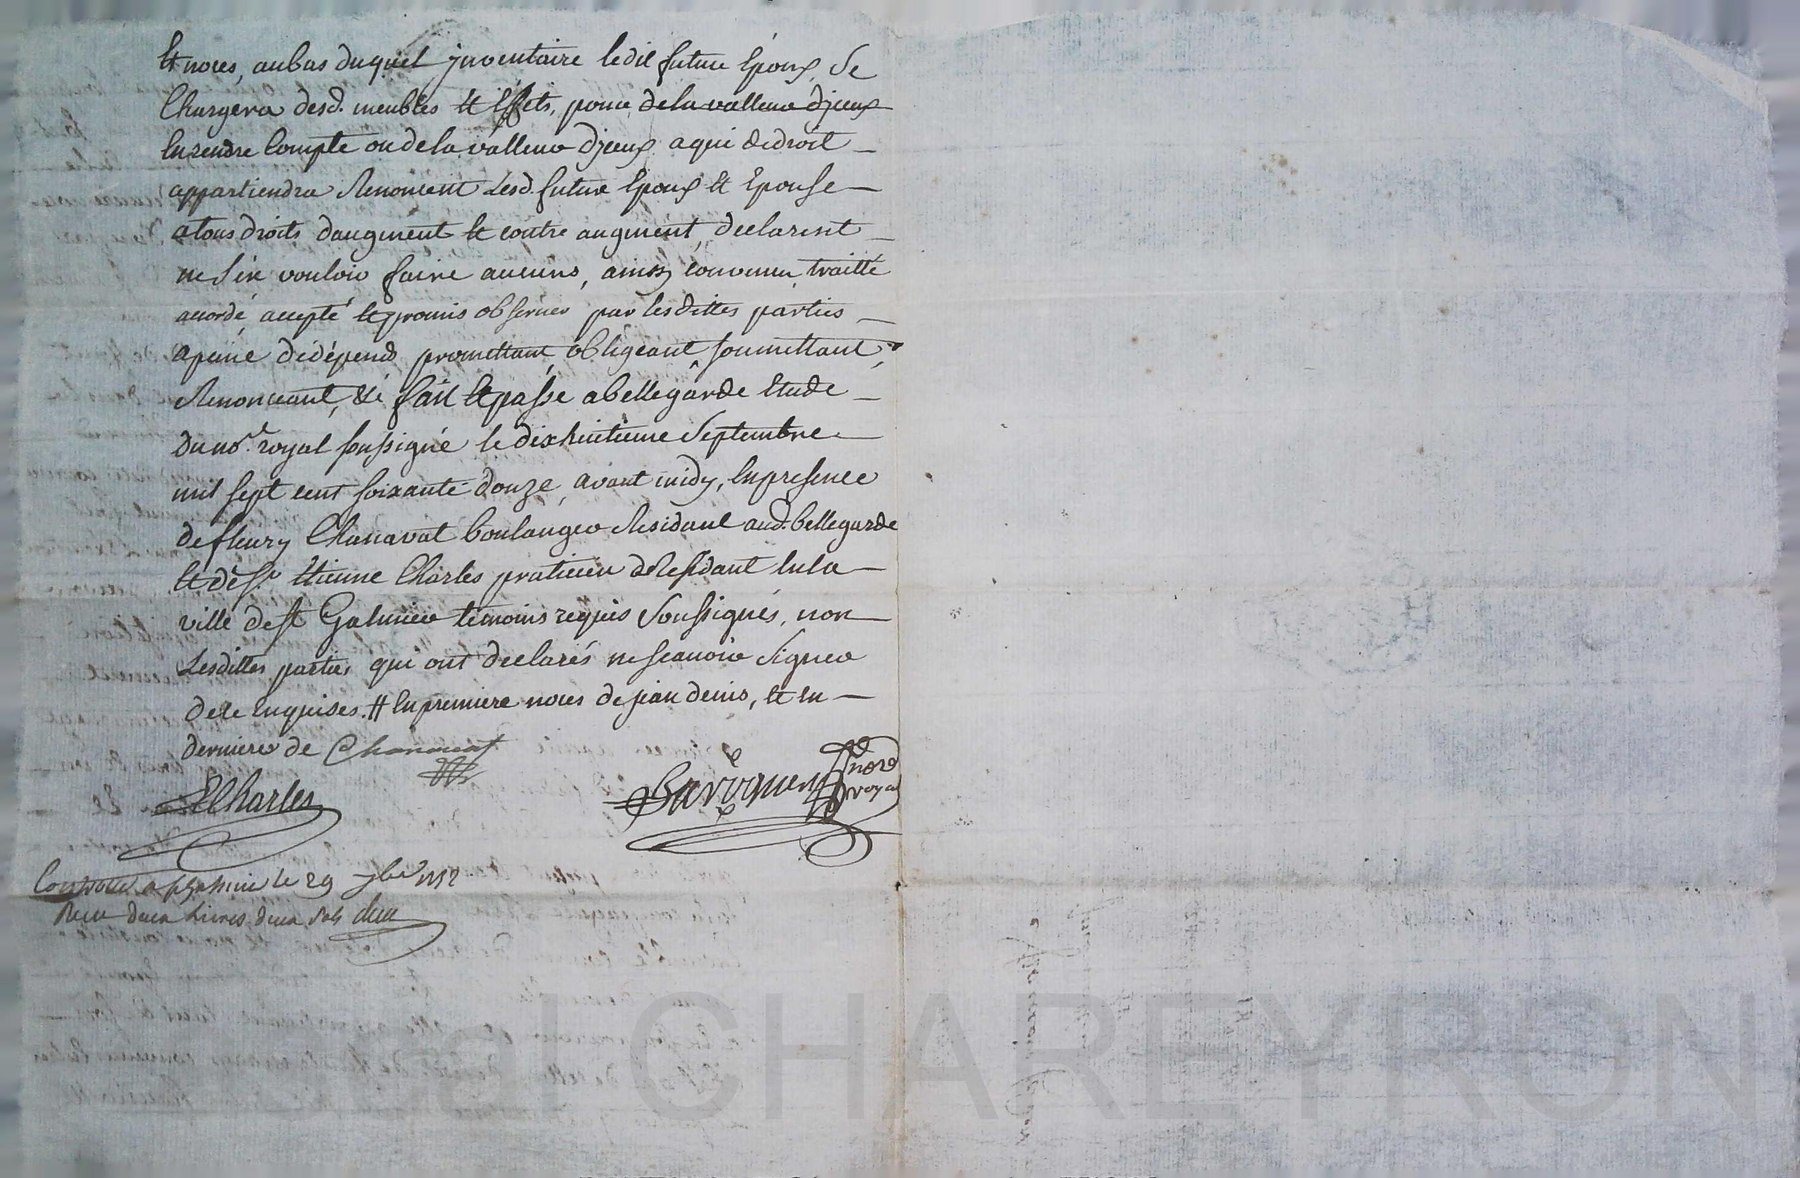 Et noces, au bas duquel jnventaire ledit futur Epoux, Se
Chargera desd. meubles et Effets, pour de la valleur d'jceux
En rendre Compte ou de la valleur d'jceux a qui de droit
appartiendra Renoncent Lesd. futur Epoux et Epouse
a tous droits daugment et contre augment, declarent
ne sen vouloir faire aucuns, ainsy convenu, traitté
acordé, accepté et promis observer par lesdittes parties
a peine de dépends, promettant, obligeant, soumettant,
Renonceant, &c fait et passé a bellegarde Etude
du no.re royal soussigné le dixhuitieme Septembre
mil sept cent soixante douze, avant midy, En presence
de fleury Chanavat boulanger Residant aud. bellegarde
et de Sr. Etienne Charles praticien Residant En la
ville de st Galmier temoins requis Soussignés, non
Lesdittes parties qui ont declarés ne scavoir Signer
de ce enquises. # En premiere noces de jean denis, et en
derniere de Chanavat
ECharles
no.re royal
Controllé a st Galmier le 29 7bre 1772
Recu deux Livres deux sols
CHAREYRON